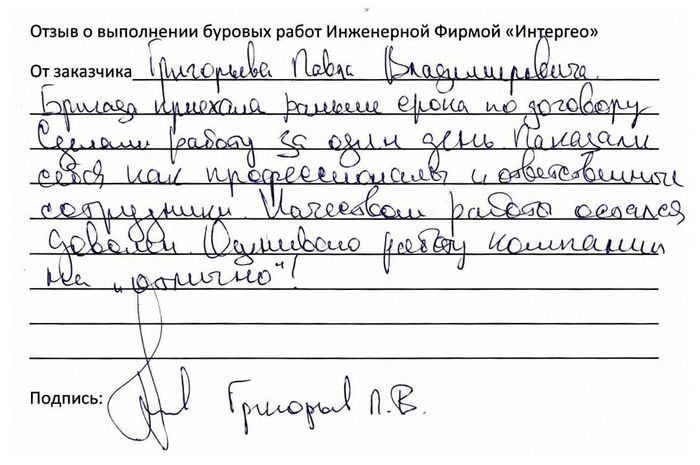 Отзыв о выполнении буровых работ Инженерной Фирмой «Интергео»
От заказчика Григорьева Павла Владимировича.
Бригада приехала раньше срока по договору
Сделали работу за один день. Показали
себя как профессионалы и ответственные
сотрудники. Качеством работы остался
доволен. Оцениваю работу компании
на „отлично"!
Подпись: Григорьев П.В.